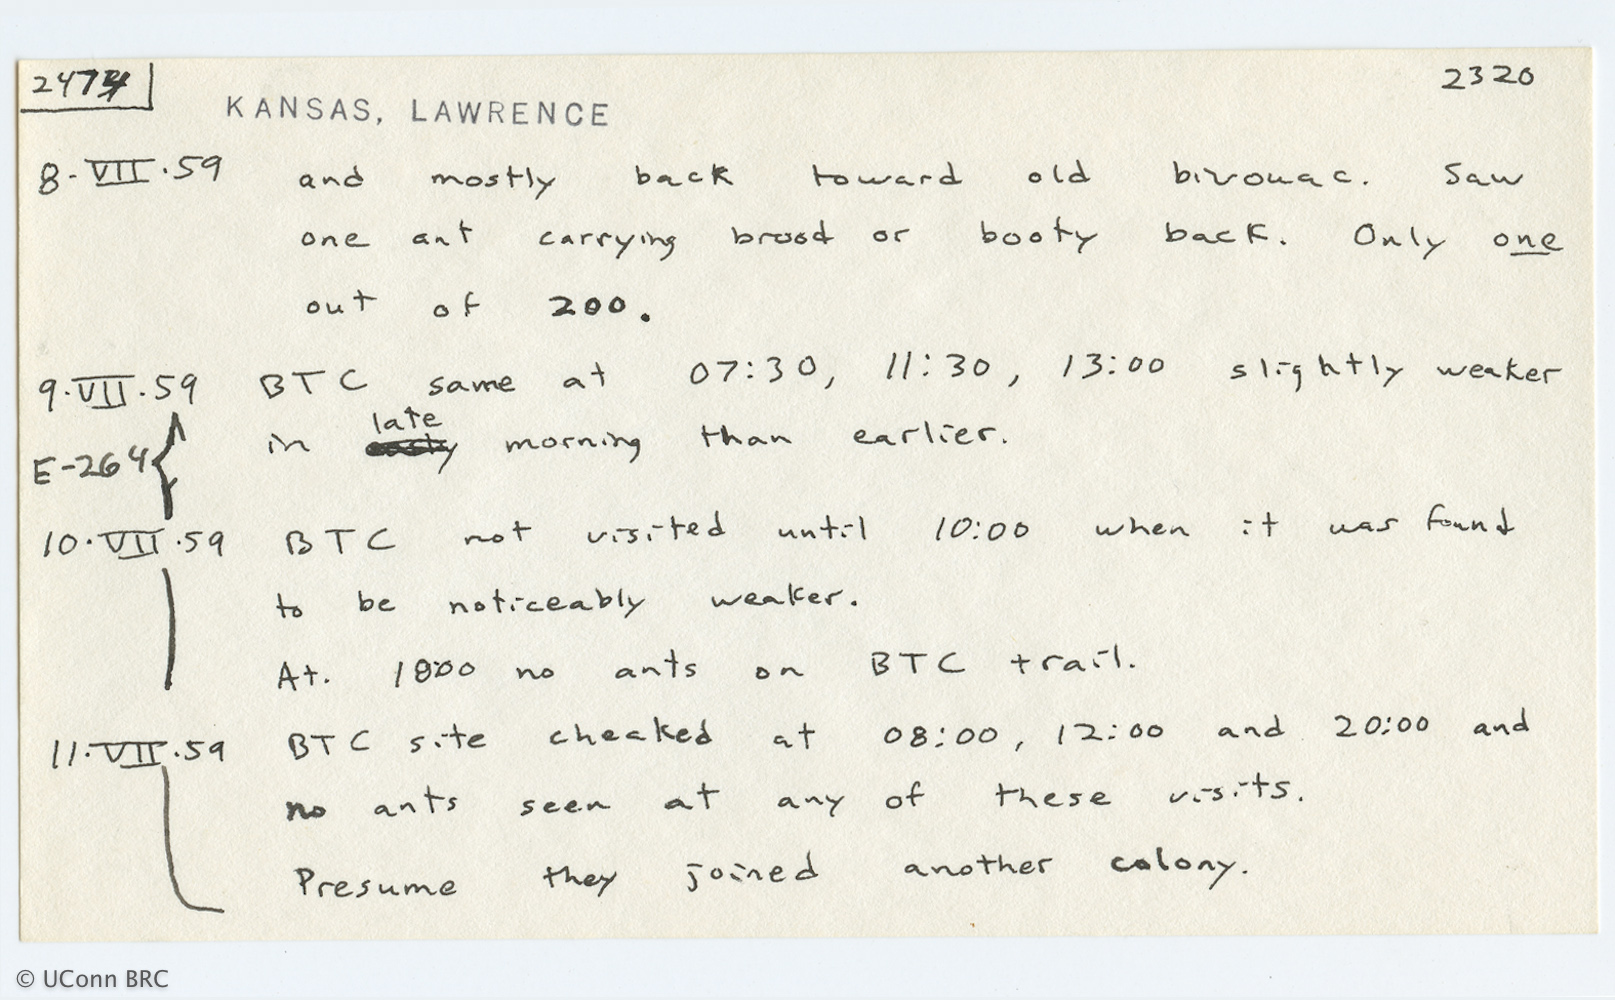 2474
2320
KANSAS, LAWRENCE
8.VII.59 and mostly back toward old bivouac. Saw
one ant carrying brood or booty back. Only one
out of 200.
9.VII.59 BTC same at 07:30, 11:30, 13:00 slightly weaker
late
in morning than earlier.
E-264
10.VII.59 BTC not visited until 10:00 when it was found
to be noticeably weaker.
At. 1800 no ants on BTC trail.
11.VII.59 BTC site cheaked at 08:00, 12:00 and 20:00 and
no ants seen at any of these visits.
Presume they joined another colony.
© UConn BRC